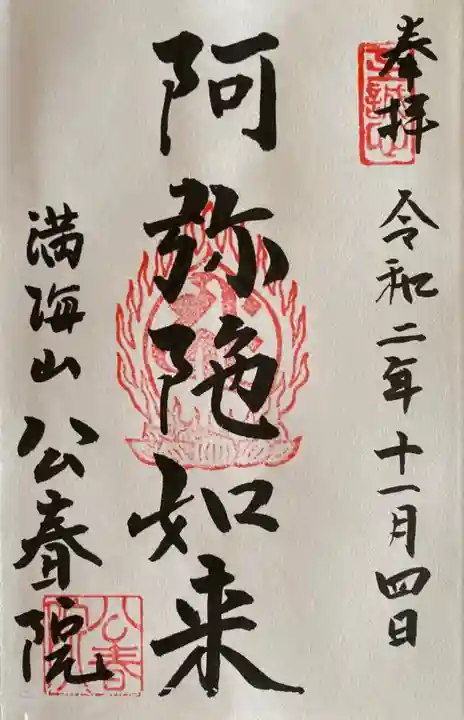 奉拝
令和二年十一月四日
阿弥陀如来
満海山
公春院
公春
院